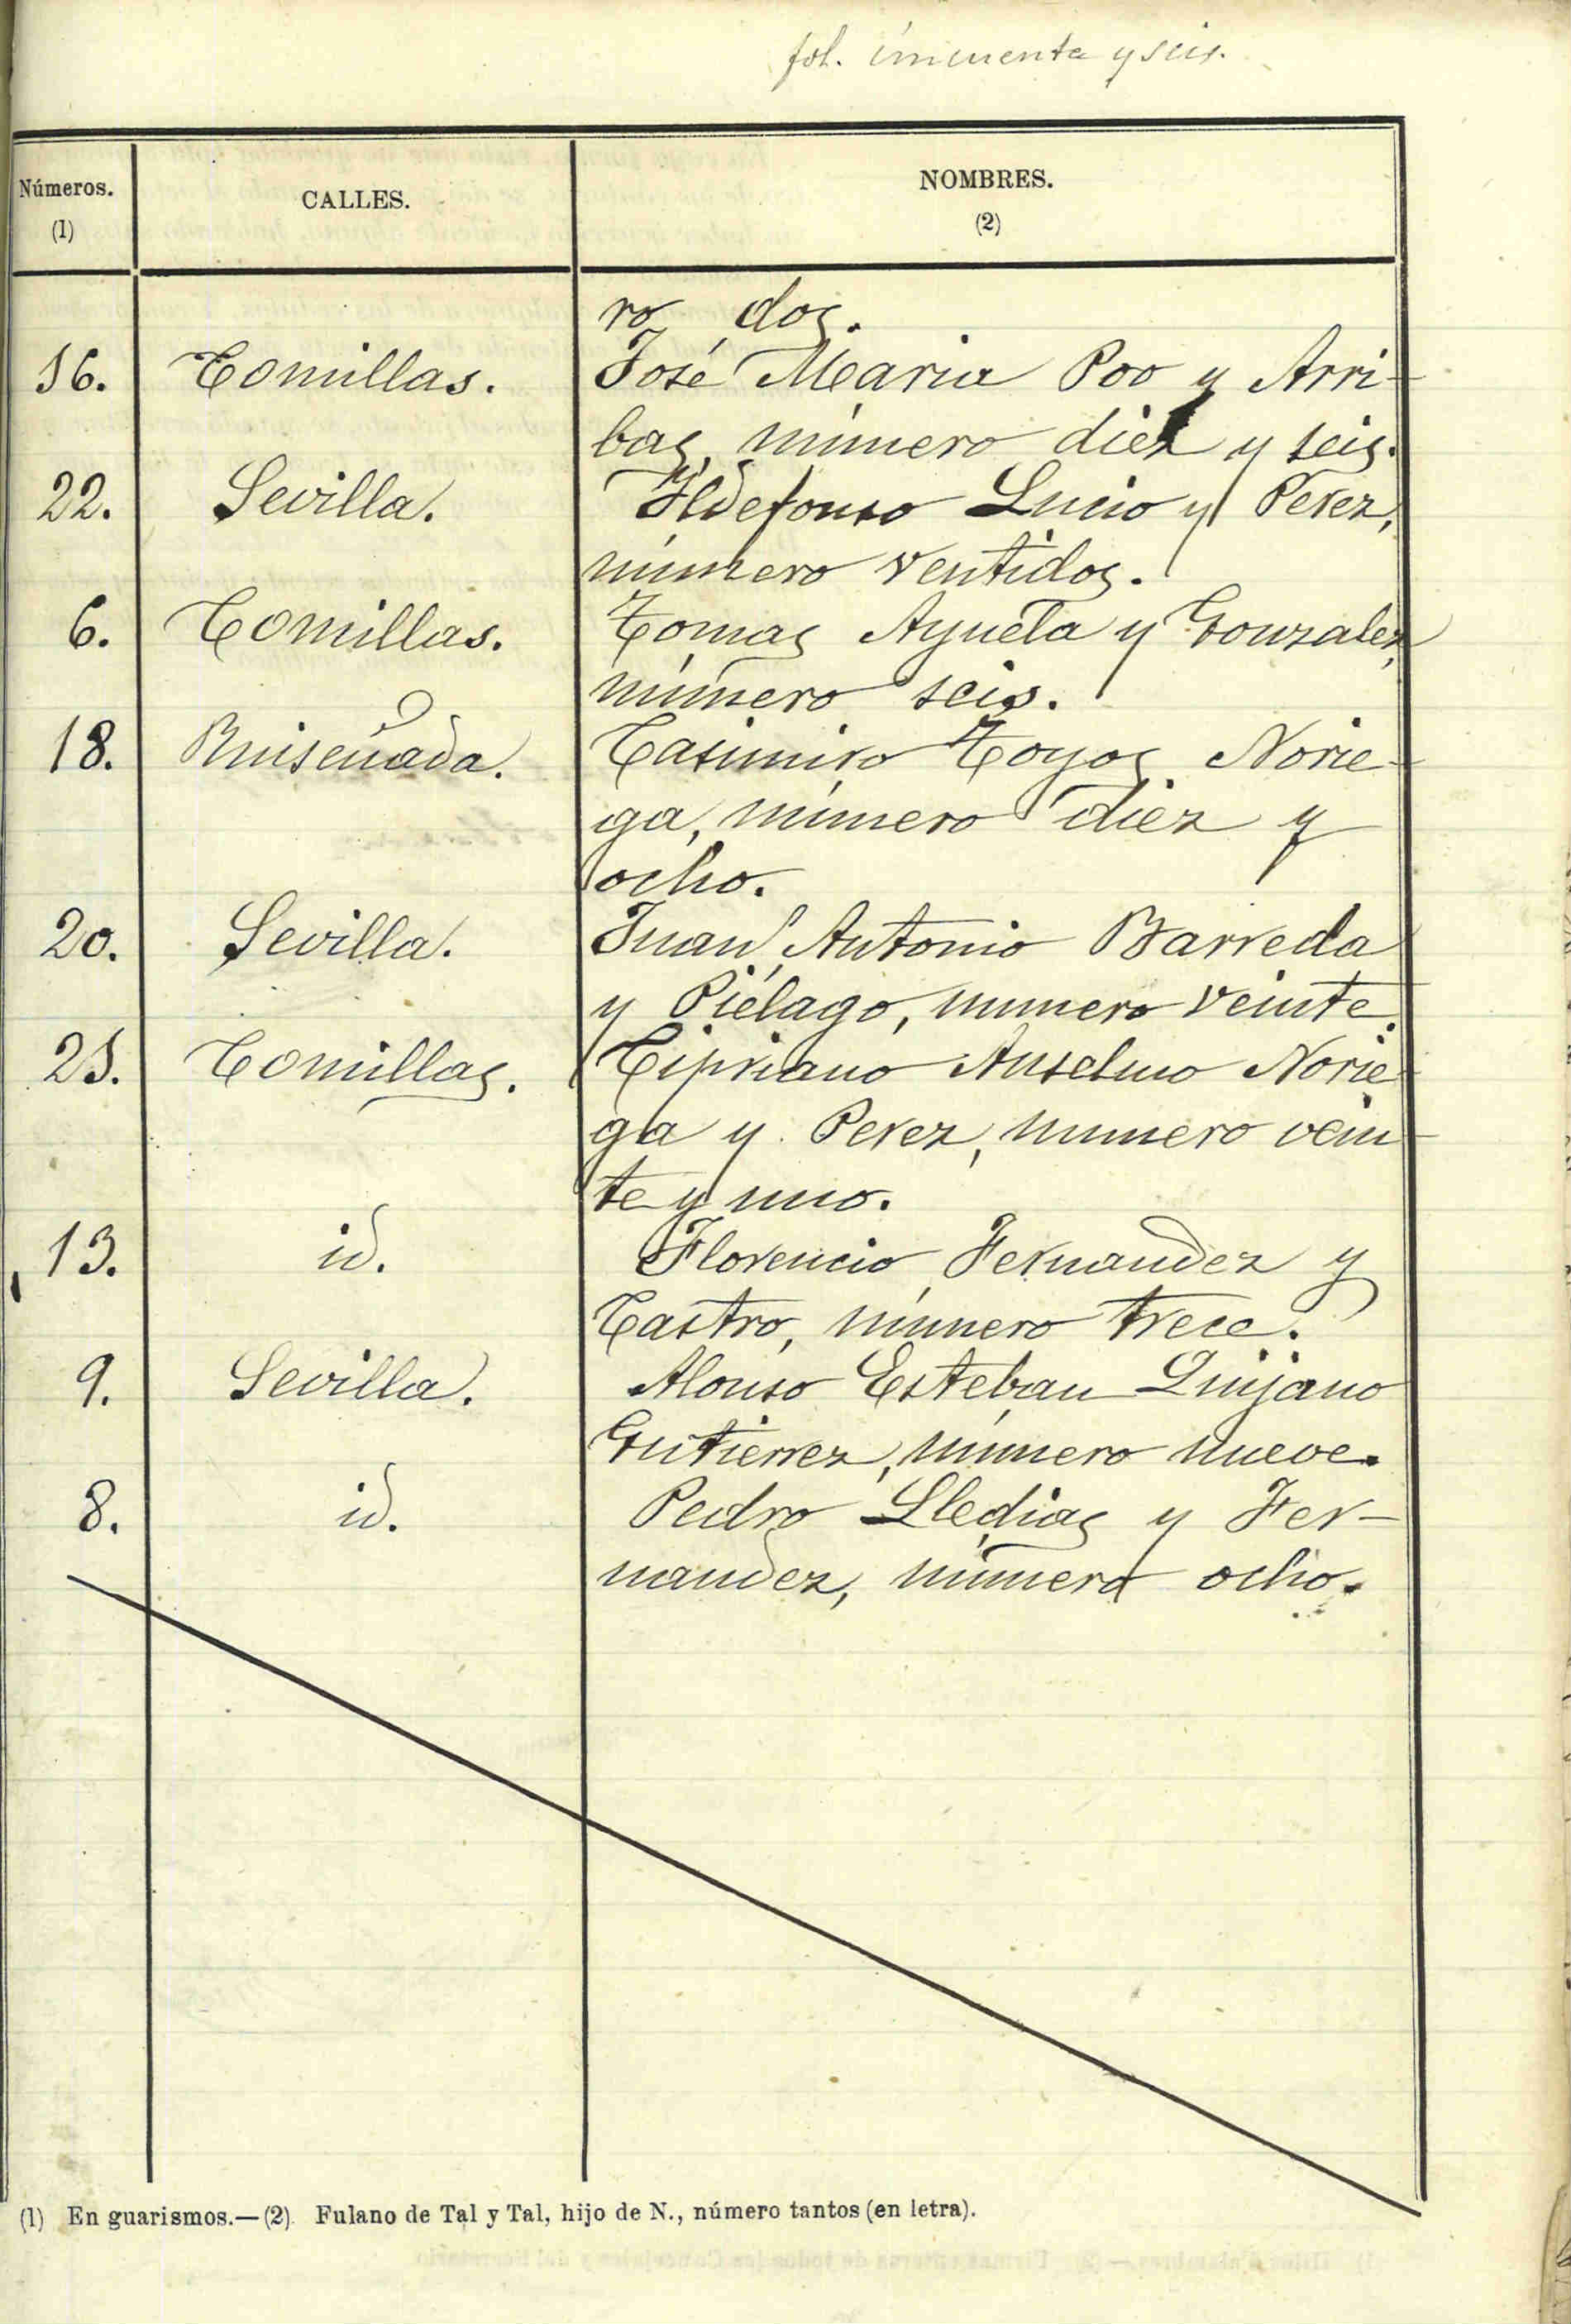 fol. cincuenta y seis.
Números. CALLES. NOMBRES.
(1) (2)
ro dos.
16. Comillas. José Maria Poo y Arri-
bas, número diez y seis.
22. Sevilla. Ildefonso Lucio y Perez,
número ventidos.
6. Comillas. Tomas Ayuela y Gonzalez,
número seis.
18. Ruiseñada. Casimiro Toyos Norie-
ga, número diez y
ocho.
20. Sevilla. Juan Antonio Barreda
y Piélago, numero veinte.
21. Comillas. Cipriano Anselmo Norie-
ga y Perez, numero vein-
te y uno.
13. id. Florencio Fernandez y
Castro, número trece.
9. Sevilla. Alonso Esteban Quijano
Gutierrez, número nueve.
8. id. Pedro Lledias y Fer-
nandez, número ocho.
(1) En guarismos.—(2) Fulano de Tal y Tal, hijo de N., número tantos (en letra).